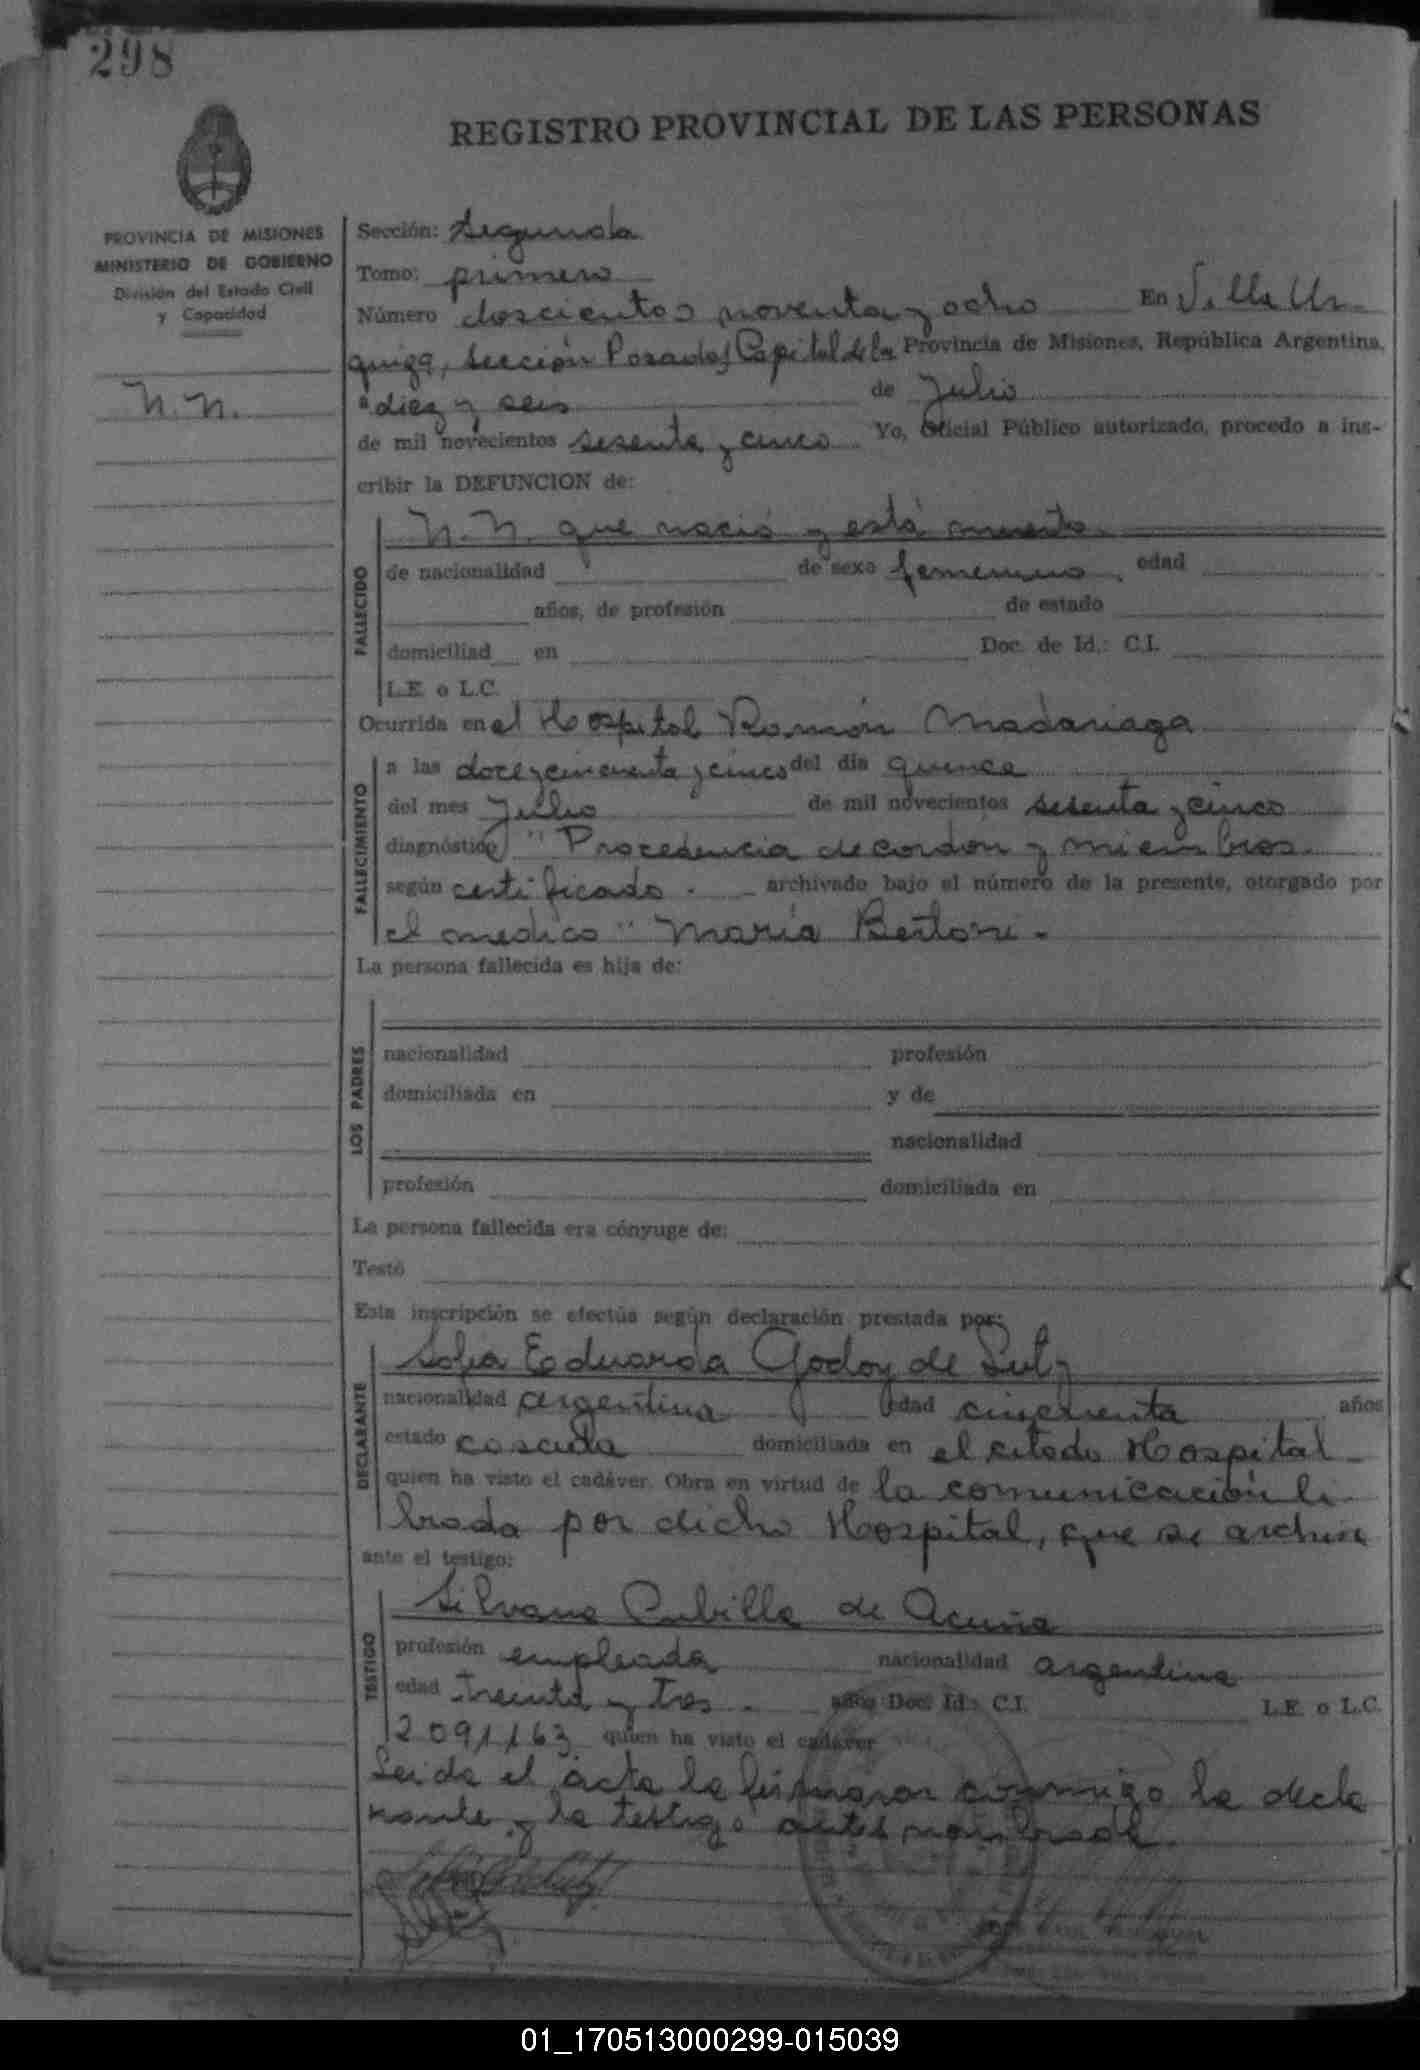 298
REGISTRO PROVINCIAL DE LAS PERSONAS
PROVINCIA DE MISIONES
MINISTERIO DE GOBIERNO
División del Estado Civil
y Capacidad
N.N.
Sección: Segunda
Tomo: primero
Número doscientos noventa y ocho En Villa Ur-
quiza, Sección Posadas Capital de la Provincia de Misiones, República Argentina,
a diez y seis de Julio
de mil novecientos sesenta y cinco Yo, Oficial Público autorizado, procedo a ins-
cribir la DEFUNCION de:
FALLECIDO
N.N. que nació y está muerto.
de nacionalidad de sexo femenino, edad
años, de profesión de estado
domiciliad en Doc. de Id.: C.I.
L.E. o L.C.
Ocurrida en el Hospital Ramón Madariaga
FALLECIMIENTO
a las doce y cincuenta y cinco del día quince
del mes Julio de mil novecientos sesenta y cinco
diagnóstico "Procedencia de cordon y miembros.
según certificado. archivado bajo el número de la presente, otorgado por
el medico "María Bertoni.-
La persona fallecida es hija de:
LOS PADRES
nacionalidad profesión
domiciliada en y de
nacionalidad
profesión domiciliada en
La persona fallecida era cónyuge de:
Testó
Esta inscripción se efectúa según declaración prestada por:
DECLARANTE
Sofia Eduarda Godoy de Lutz
nacionalidad argentina edad cincuenta años
estado casada domiciliada en el citado Hospital-
quien ha visto el cadáver. Obra en virtud de la comunicación li-
brada por dicho Hospital, que se archiva
ante el testigo:
TESTIGO
Silvana Cubilla de Acuña
profesión empleada nacionalidad argentina
edad treinta y tres. años Doc. Id.: C.I. L.E. o L.C.
2.091.163 quien ha visto el cadáver
Leida el acta la firmaron conmigo la decla
rante y la testigo antes nombrada.
01_170513000299-015039